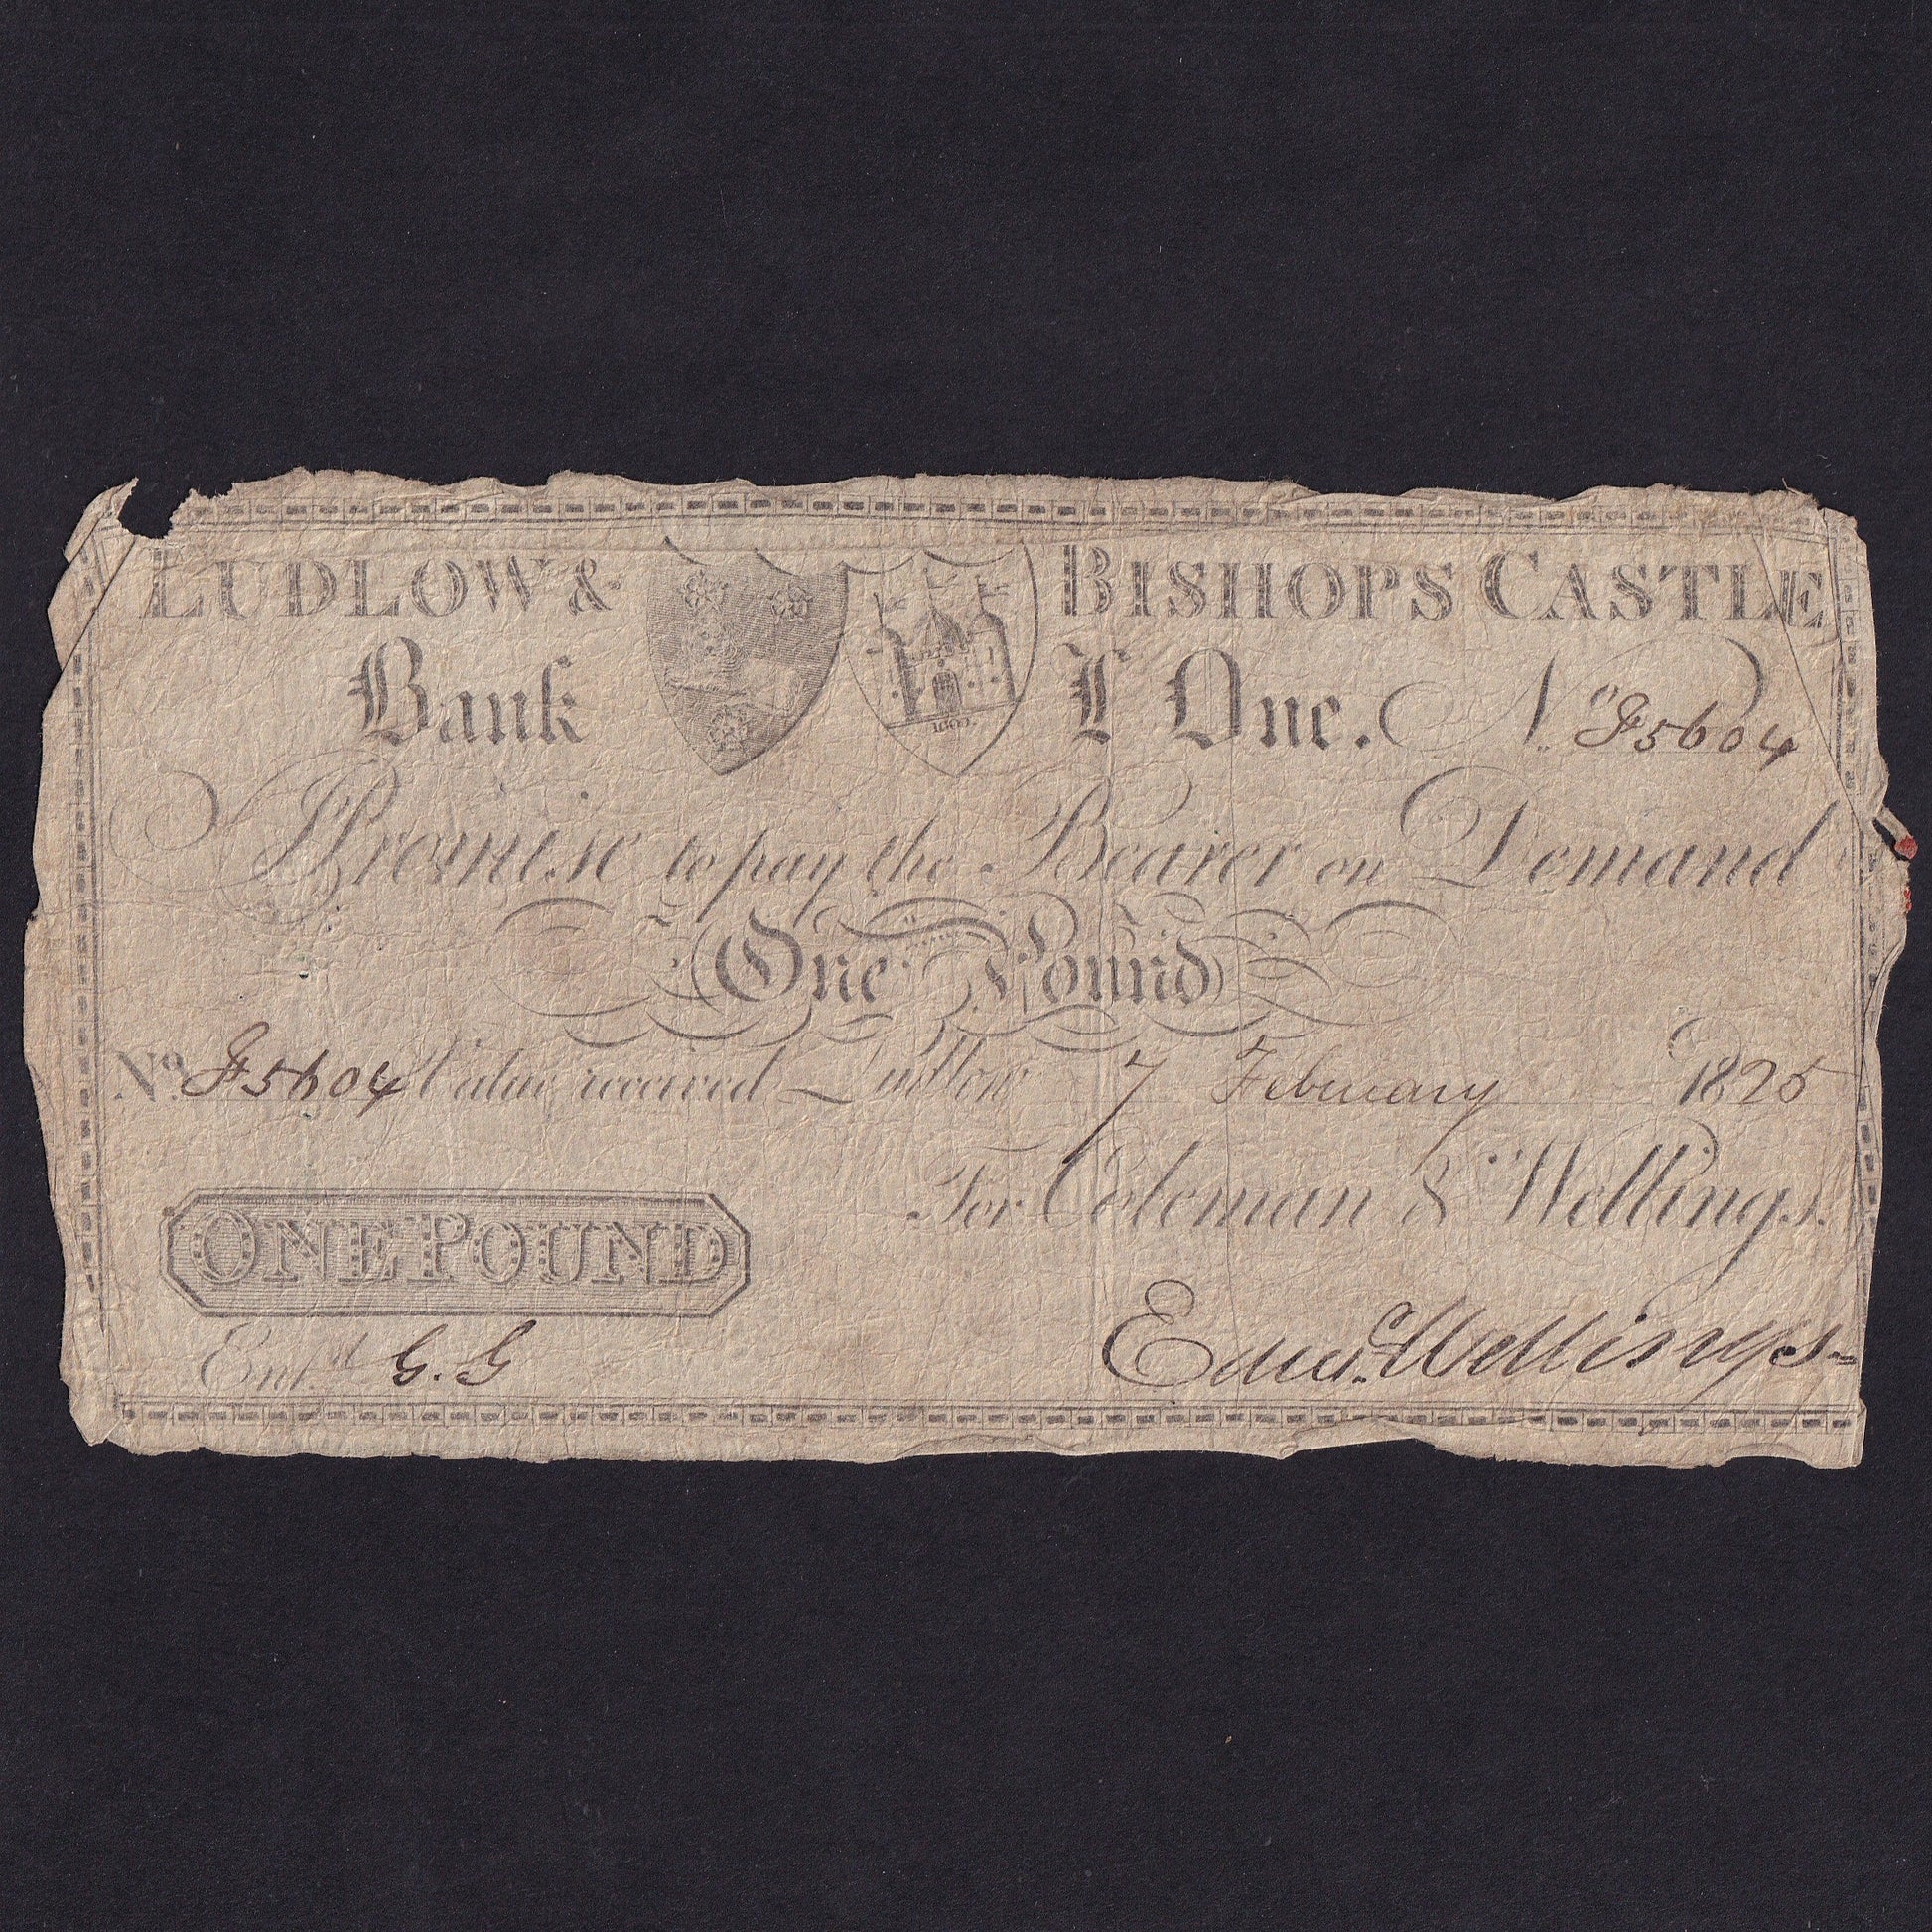 LUDLOW & BISHOPS CASTLE
Bank £ One. No F5604
I Promise to pay the Bearer on Demand
One Pound
No. F5604 Value received Ludlow 7 February 1825
For Coleman & Wellings.
ONE POUND
Ent.d G.G
Edwd. Wellings